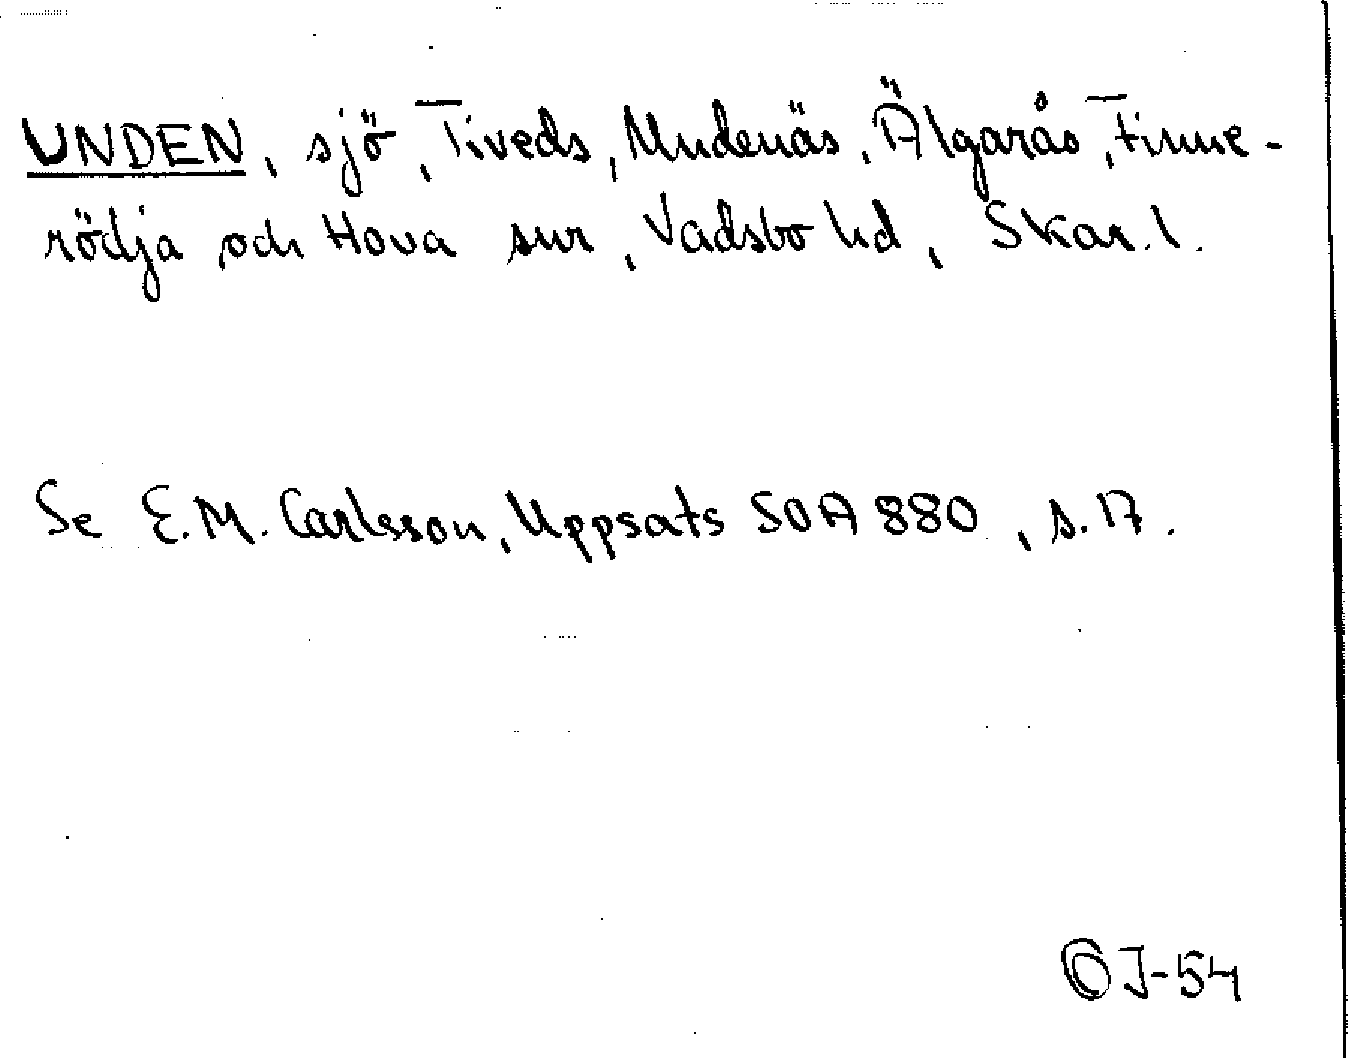 UNDEN, sjö, Tiveds, Undenäs, Älgarås, Finne-
rödja och Hova snr, Vadsbo hd, Skar. l.
Se E.M. Carlsson, Uppsats SOA 880, s. 17.
6J-54